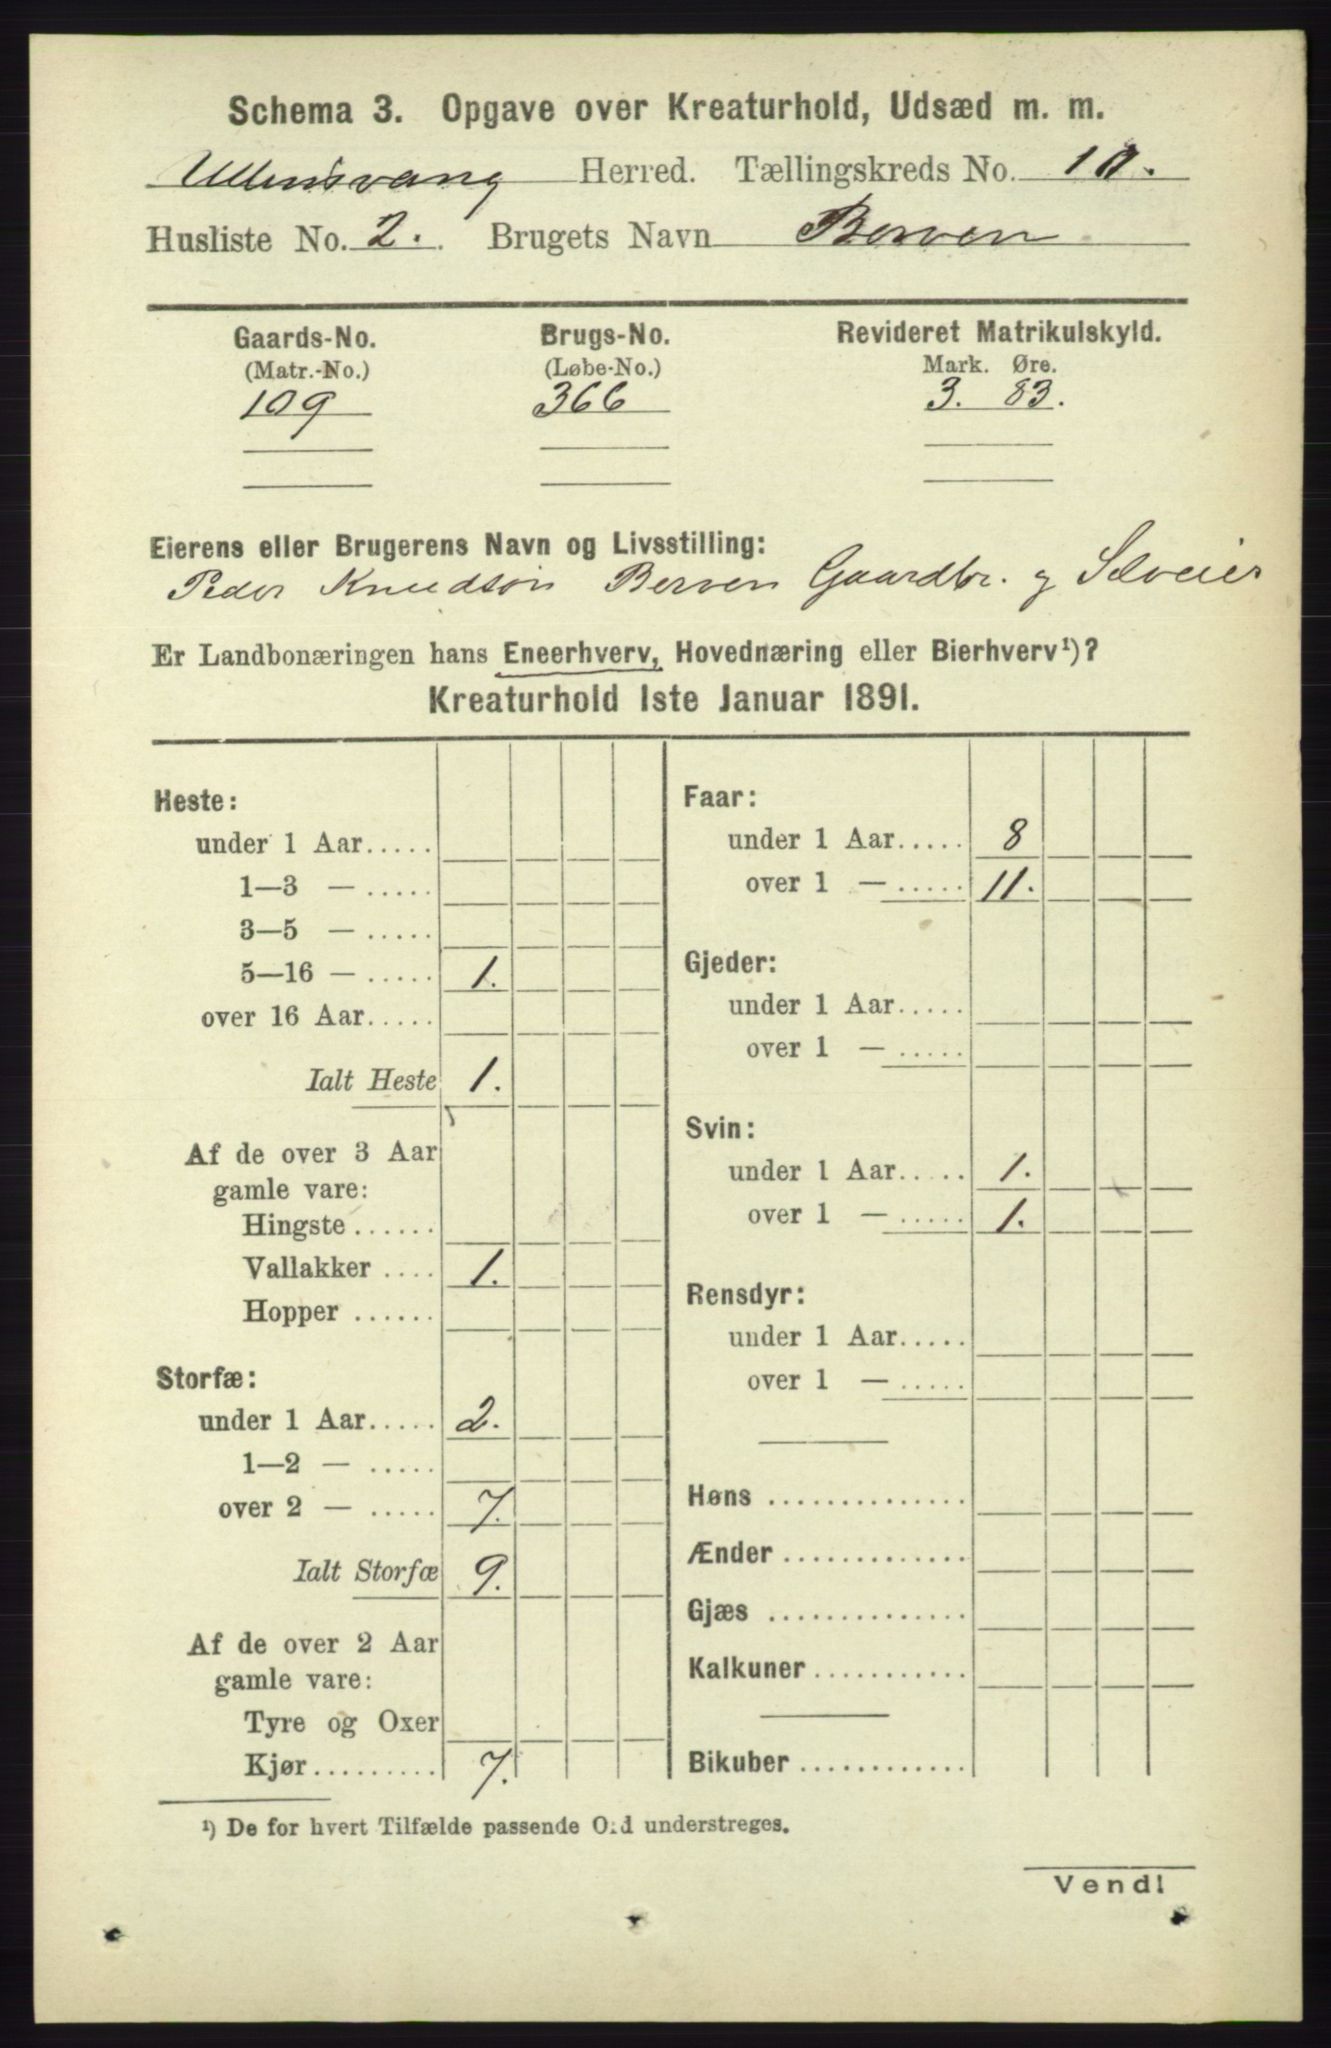 Schema 3. Opgave over Kreaturhold, Udsæd m. m.
Ullensvang Herred. Tællingskreds No. 10.
Husliste No. 2. Brugets Navn Berven
Gaards-No. Brugs-No. Revideret Matrikulskyld.
(Matr.-No.) (Løbe-No.) Mark. Øre.
109 366 3. 83.
Eierens eller Brugerens Navn og Livsstilling:
Peder Knudsøn Berven Gaardbr. og Selveier
Er Landbonæringen hans Eneerhverv, Hovednæring eller Bierhverv¹)?
Kreaturhold 1ste Januar 1891.
Heste:
under 1 Aar.....
1—3 — .....
3—5 — .....
5—16 — ..... 1.
over 16 Aar.....
Ialt Heste 1.
Af de over 3 Aar
gamle vare:
Hingste ......
Vallakker .... 1.
Hopper ......
Storfæ:
under 1 Aar..... 2.
1—2 — .....
over 2 — ..... 7.
Ialt Storfæ 9.
Af de over 2 Aar
gamle vare:
Tyre og Oxer
Kjør......... 7.
Faar:
under 1 Aar..... 8
over 1 — ..... 11.
Gjeder:
under 1 Aar.....
over 1 — .....
Svin:
under 1 Aar..... 1.
over 1 — ..... 1.
Rensdyr:
under 1 Aar.....
over 1 — .....
Høns ..............
Ænder .............
Gjæs ..............
Kalkuner...........
Bikuber ............
¹) De for hvert Tilfælde passende Ord understreges.
Vend!